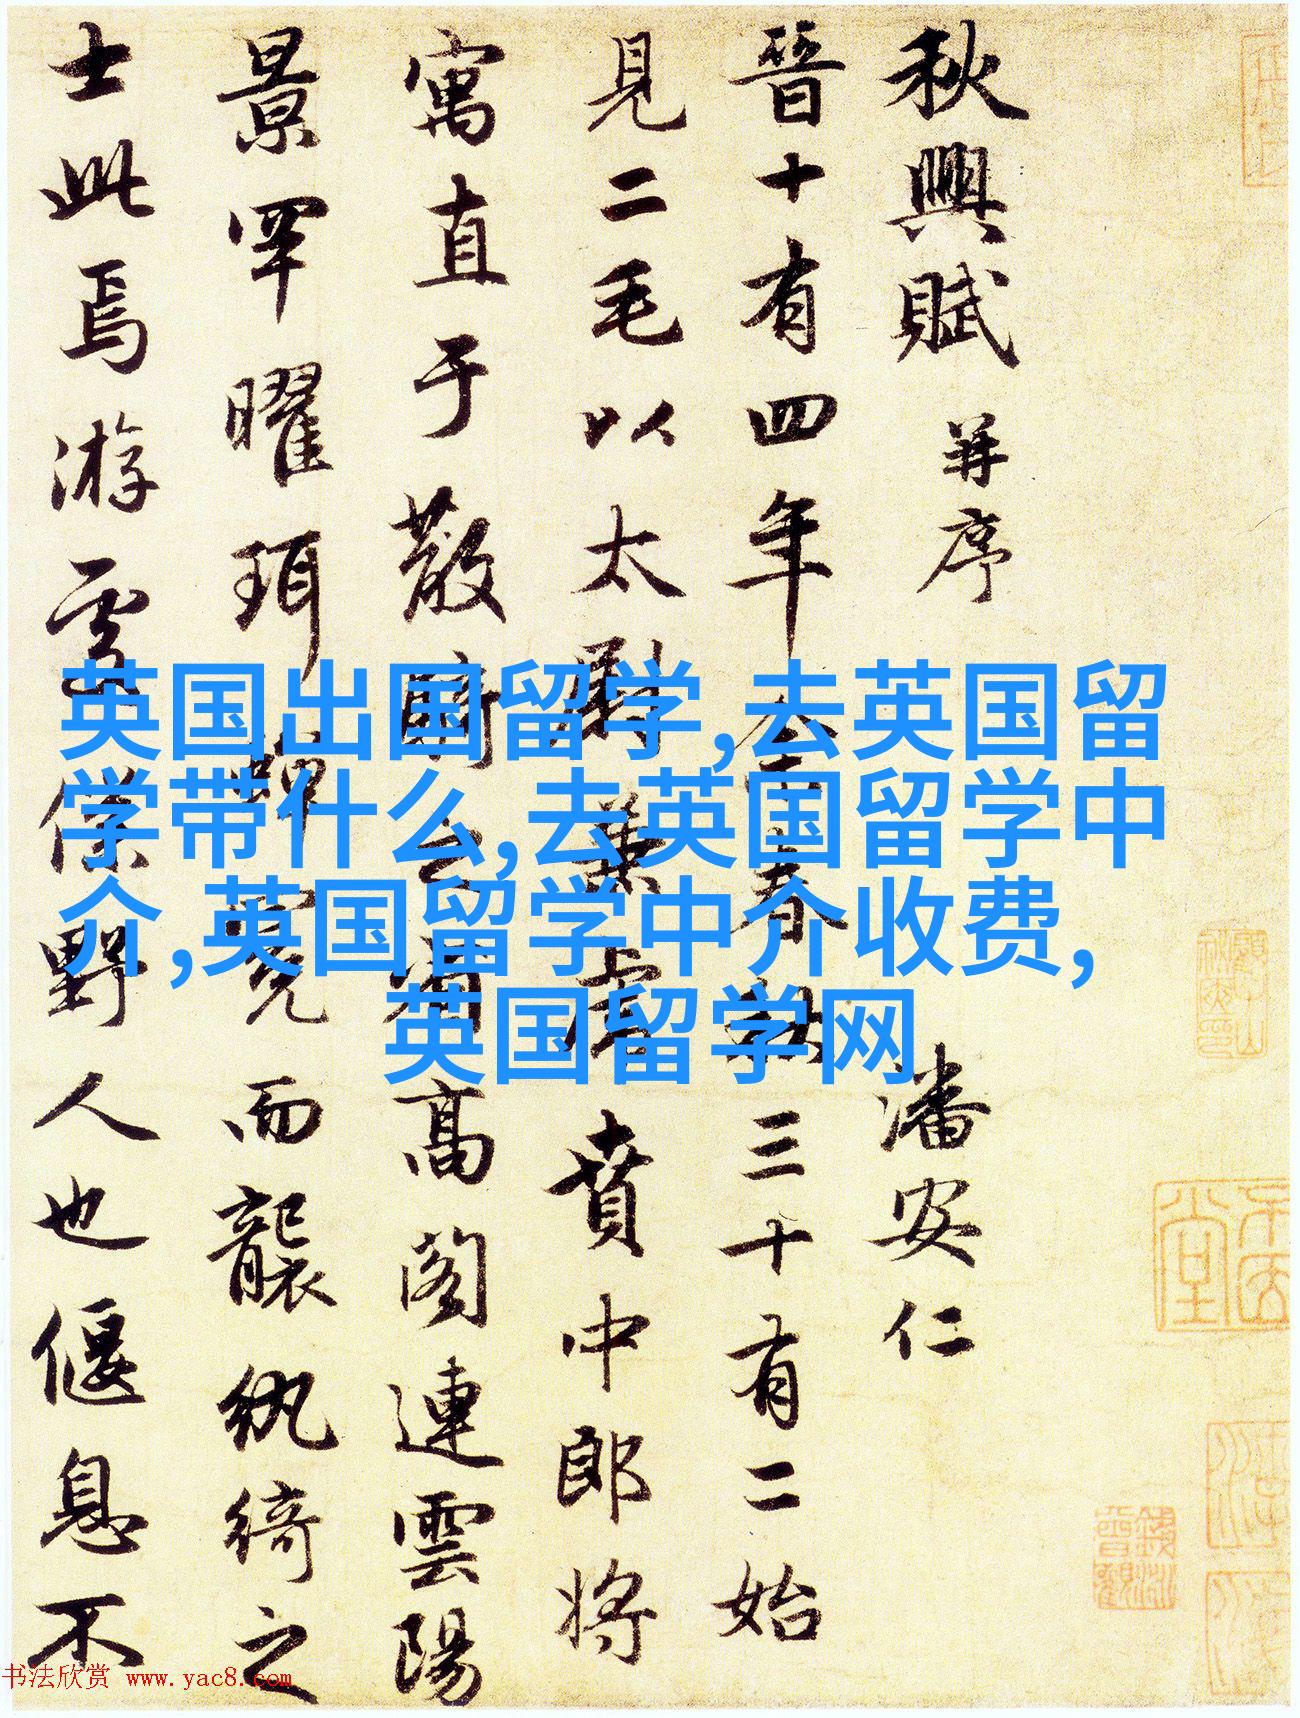 秋興賦 并序 潘安仁
晉十有四年余春秋三十有二始
見二毛以太尉掾兼虎賁中郎将
寓直于散騎之省高閣連雲陽
景罕曜珥蝉冕而襲紈綺之
士此焉游處僕野人也偃息不
英国出国留学,去英国留
学带什么,去英国留学中
介,英国留学中介收费,
英国留学网
书法欣赏 www.yac8.com